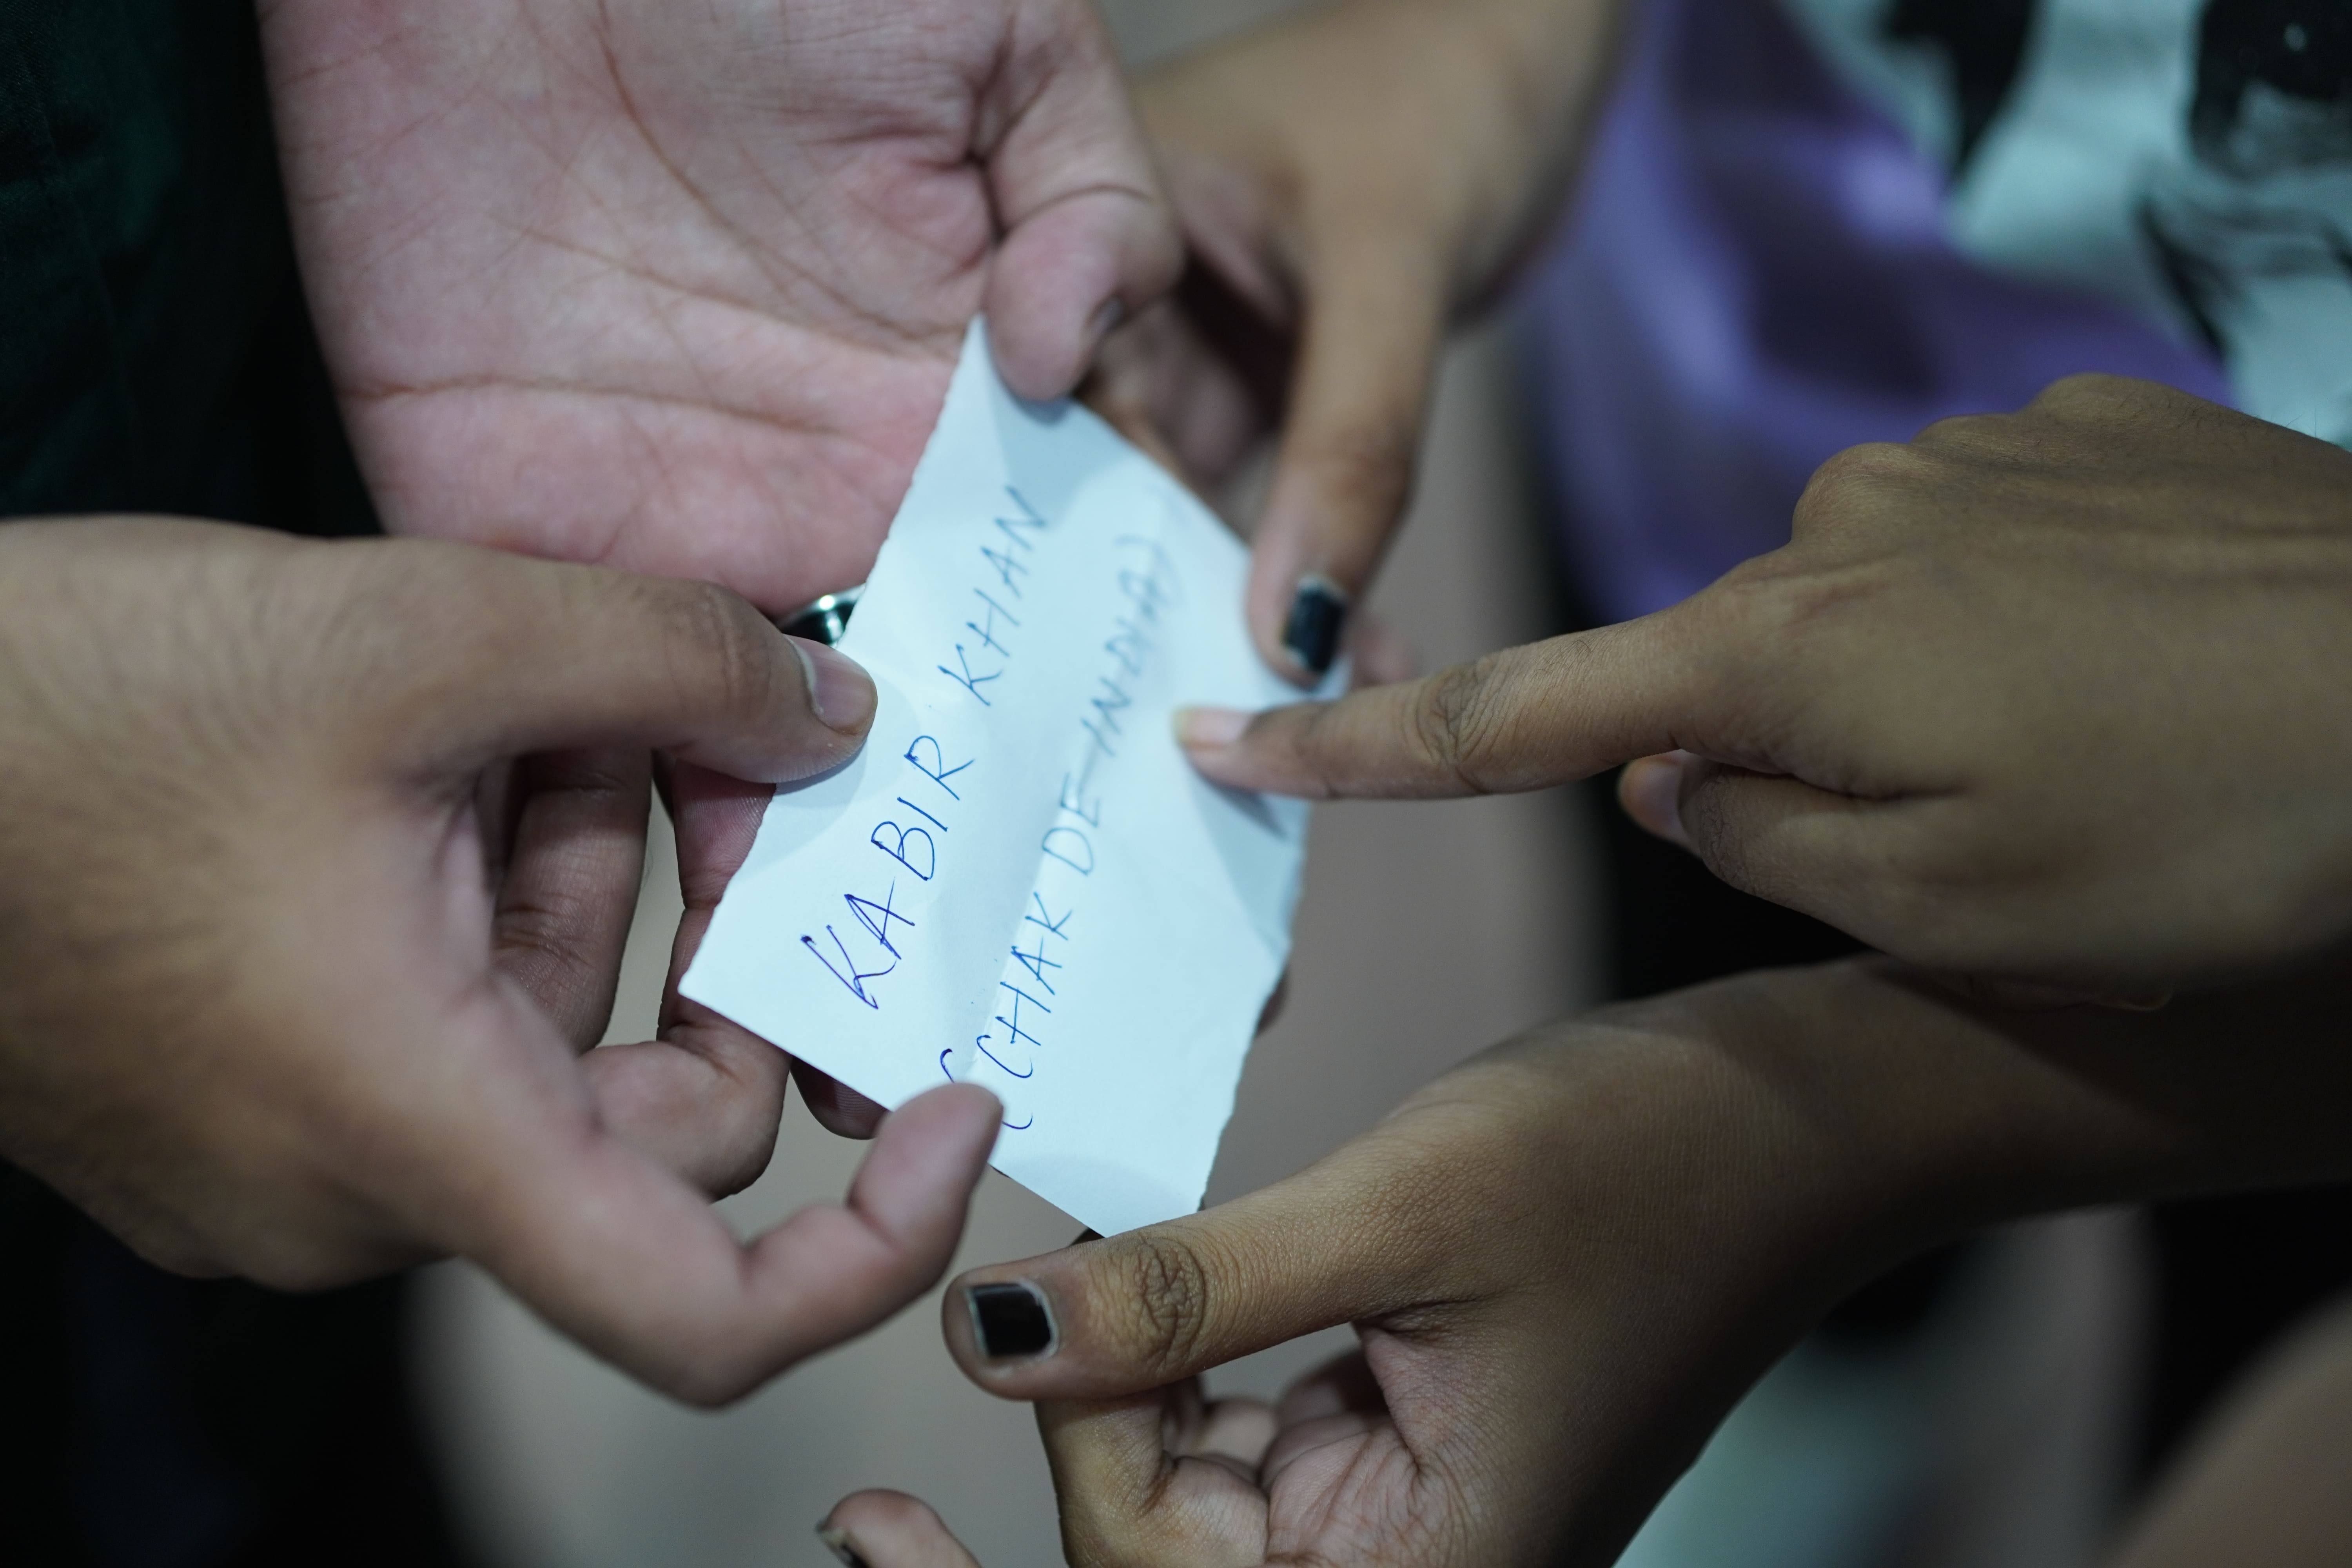 KABIR KHAN
(CHAK DE INDIA)